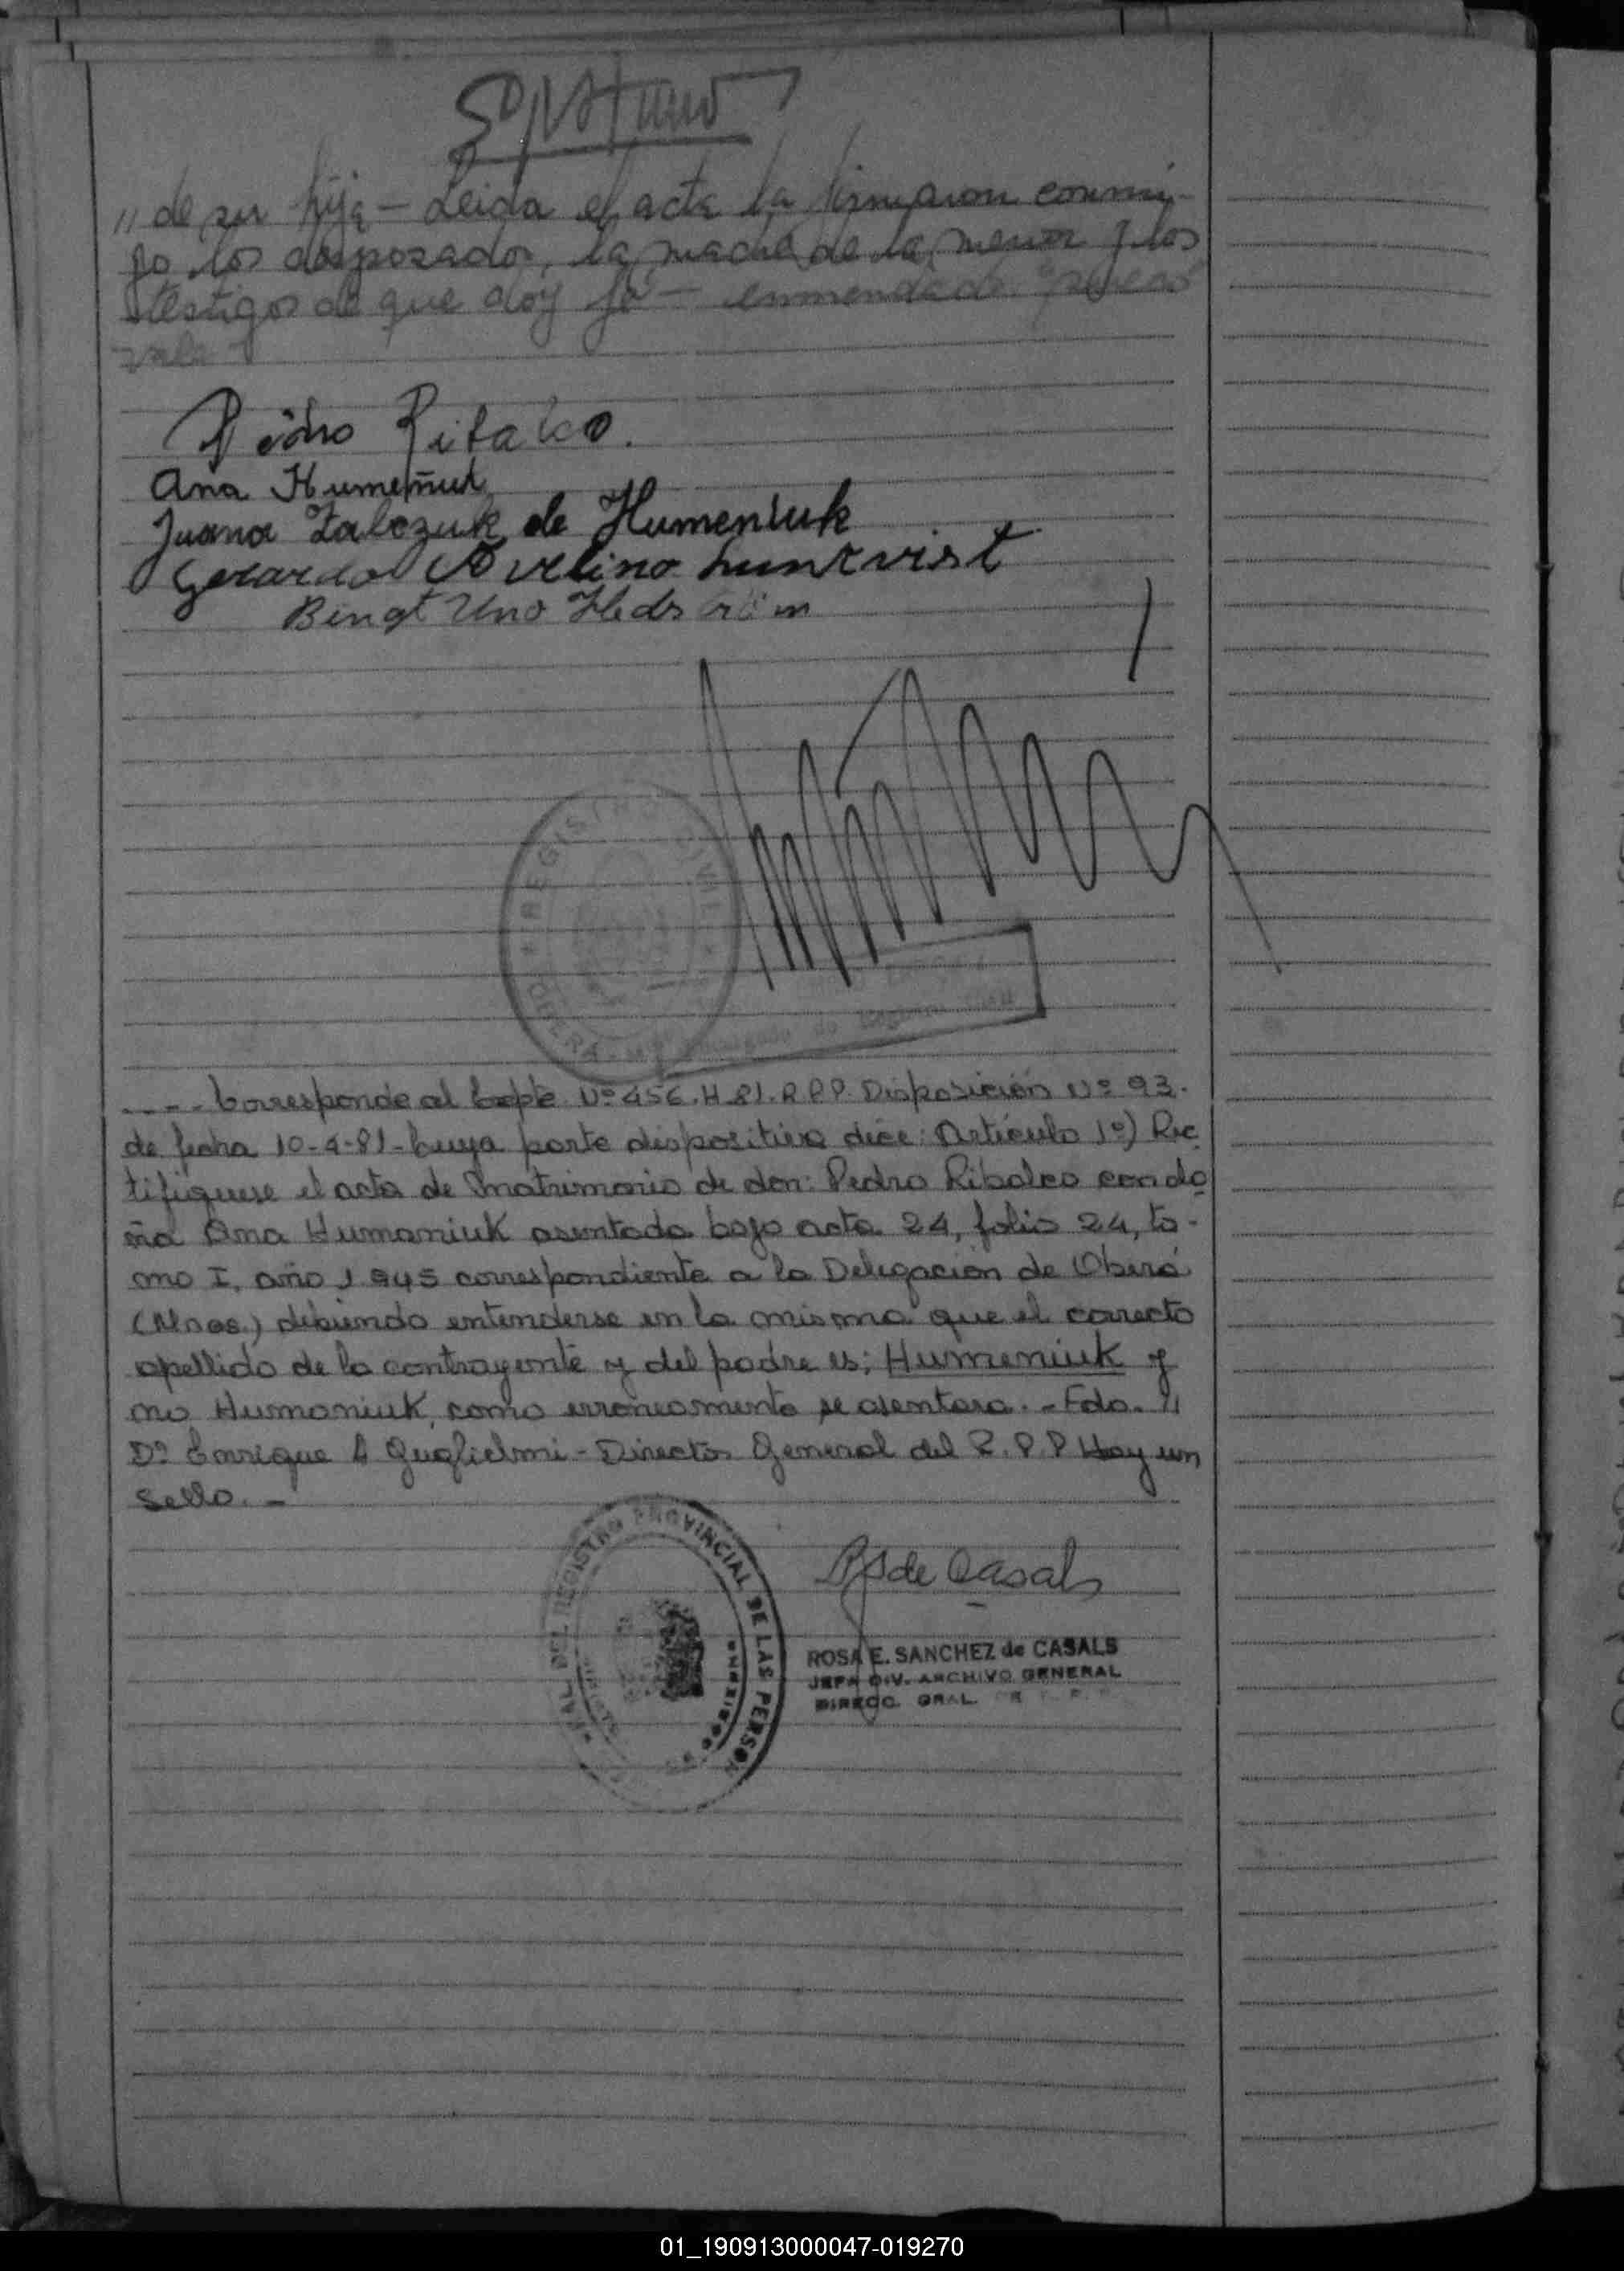 "de su hija – Leida el acta la firmaron conmi-
go los desposados, la madre de la menor y los
testigos de que doy fé – enmendado:
vale
Pedro Ribalco.
Ana Humeñuk
Juana Zabczuk de Humeniuk
Gerardo Avelino Luntvist
Bengt Uno Hedström
REGISTRO CIVIL
OBERA - M
Encargado de Registro Civil
---- Corresponde al Expte Nº 456.H.81.R.P.P. Disposición Nº 93.
de fecha 10-4-81- Cuya parte dispositiva dice: Artículo 1º) Rec
tifíquese el acta de Matrimonio de don: Pedro Ribalco con do
ña Ana Humaniuk asentada bajo acta 24, folio 24, to-
mo I, año 1.945 correspondiente a la Delegación de Oberá
(Mnes.) debiendo entenderse en la misma que el correcto
apellido de la contrayente y del padre es; Humeniuk y
no Humaniuk, como erróneamente se asentara.- Fdo.
Dº Enrique A Guglielmi - Director General del R.P.P Hay un
Sello. -
DEL REGISTRO PROVINCIAL DE LAS PERSON
RS de Casals
ROSA E. SANCHEZ de CASALS
JEFA DIV. ARCHIVO GENERAL
DIRECC. GRAL.
01_190913000047-019270